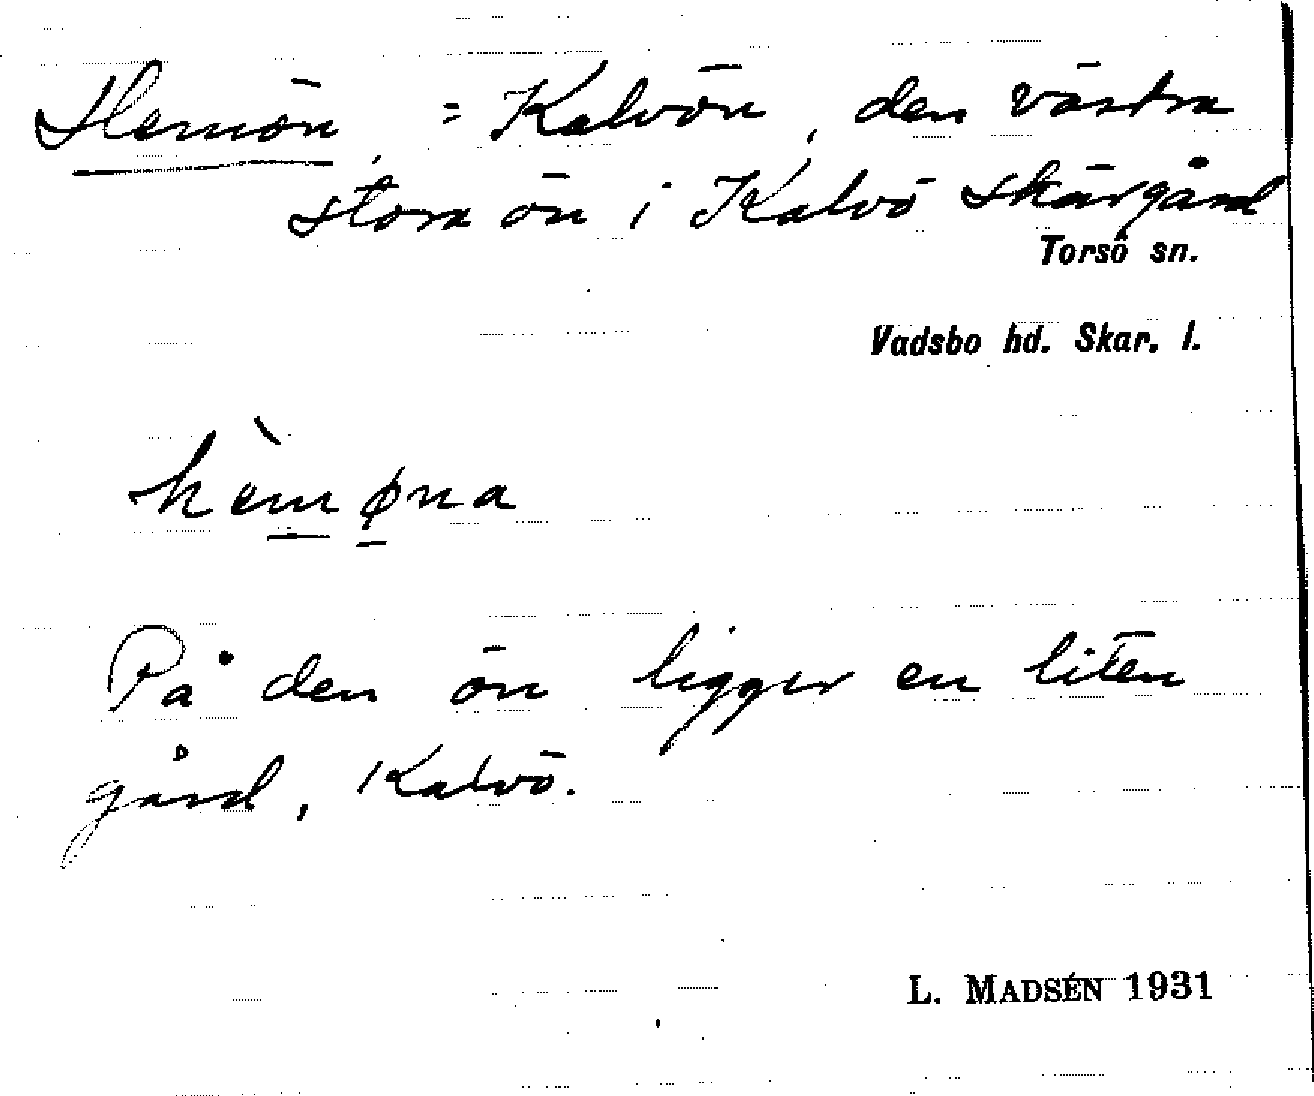 Hemön, = Kalvön, den västra
stora ön i Kalvö skärgård
Torsö sn.
Vadsbo hd. Skar. l.
hèmøna
På den ön ligger en liten
gård, Kalvö.
L. MADSÉN 1931